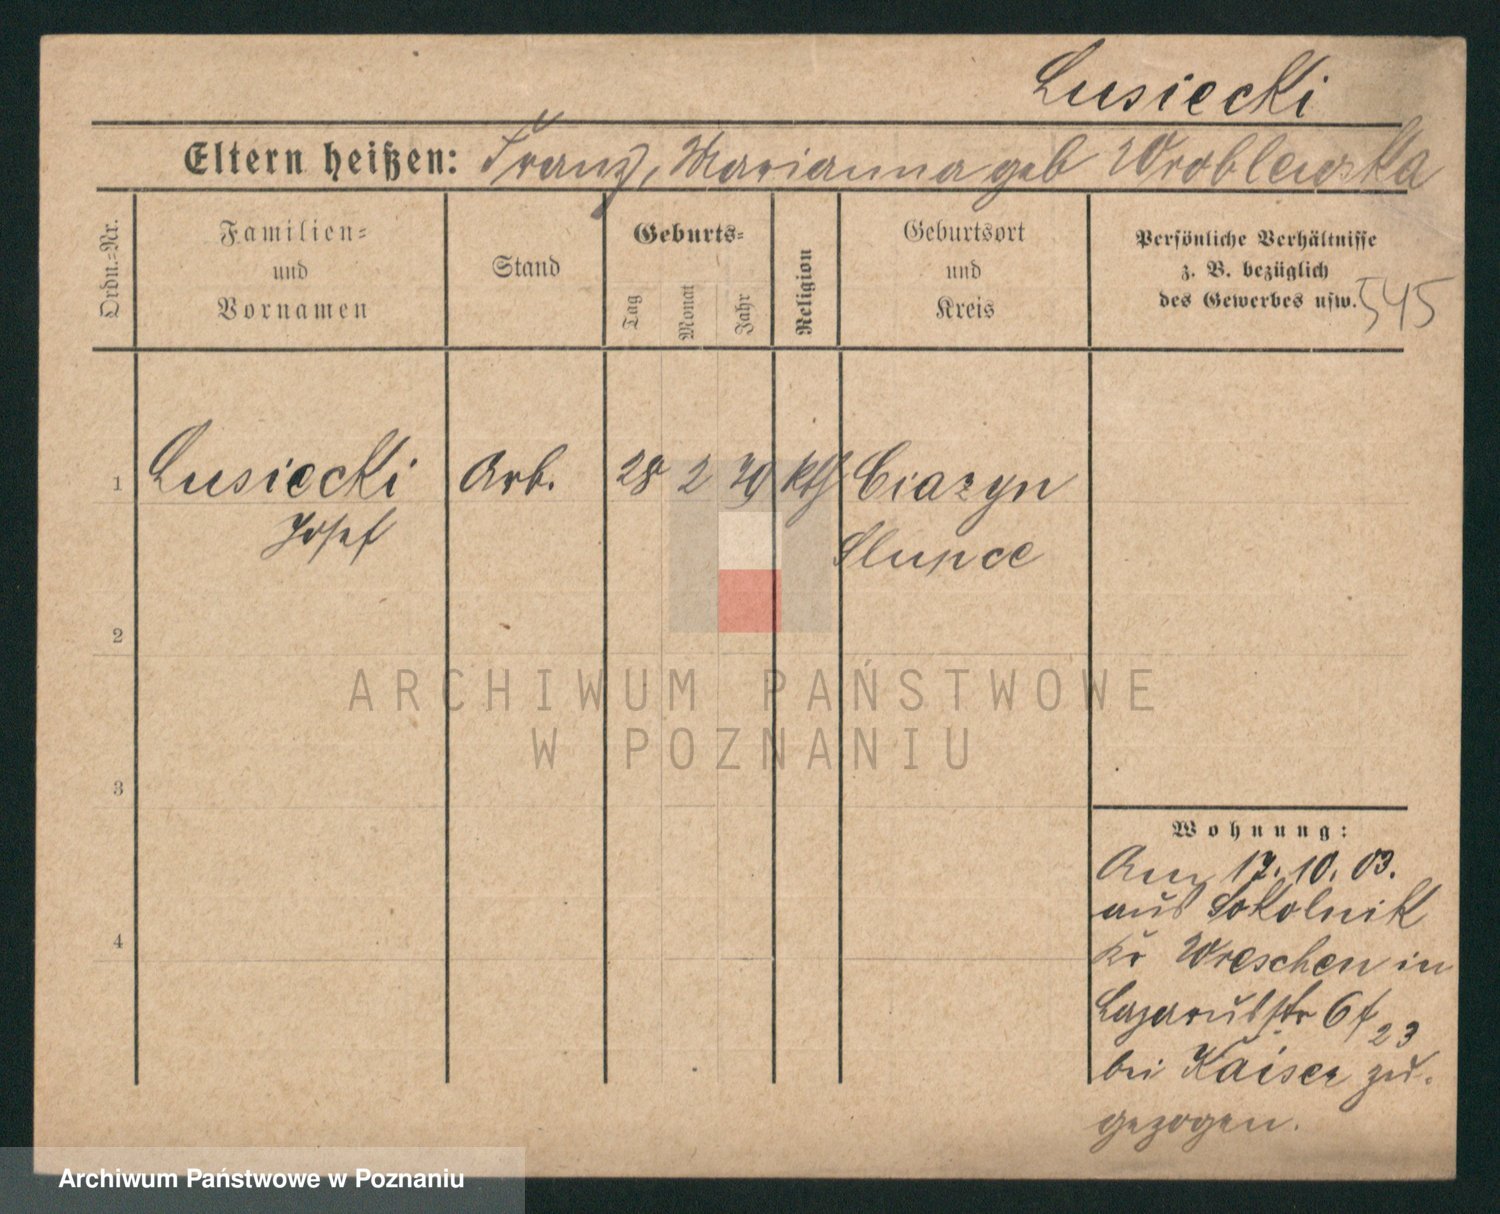 Lusiecki
Eltern heißen: Franz, Marianna geb Wroblewska
Ordn.-Nr.
Familien-
und
Vornamen
Stand
Geburts-
Tag
Monat
Jahr
Religion
Geburtsort
und
Kreis
Persönliche Verhältnisse
z. B. bezüglich
des Gewerbes usw.
545
1 Lusiecki Arb. 28 2 79 kth Ciazyn
Josef Slupce
2
3
4
ARCHIWUM PAŃSTWOWE
W POZNANIU
Wohnung:
Am 17.10.03.
aus Sokolnik
Kr Wreschen in
Lazarusstr 6
23
bei Kaiser zu-
gezogen.
Archiwum Państwowe w Poznaniu